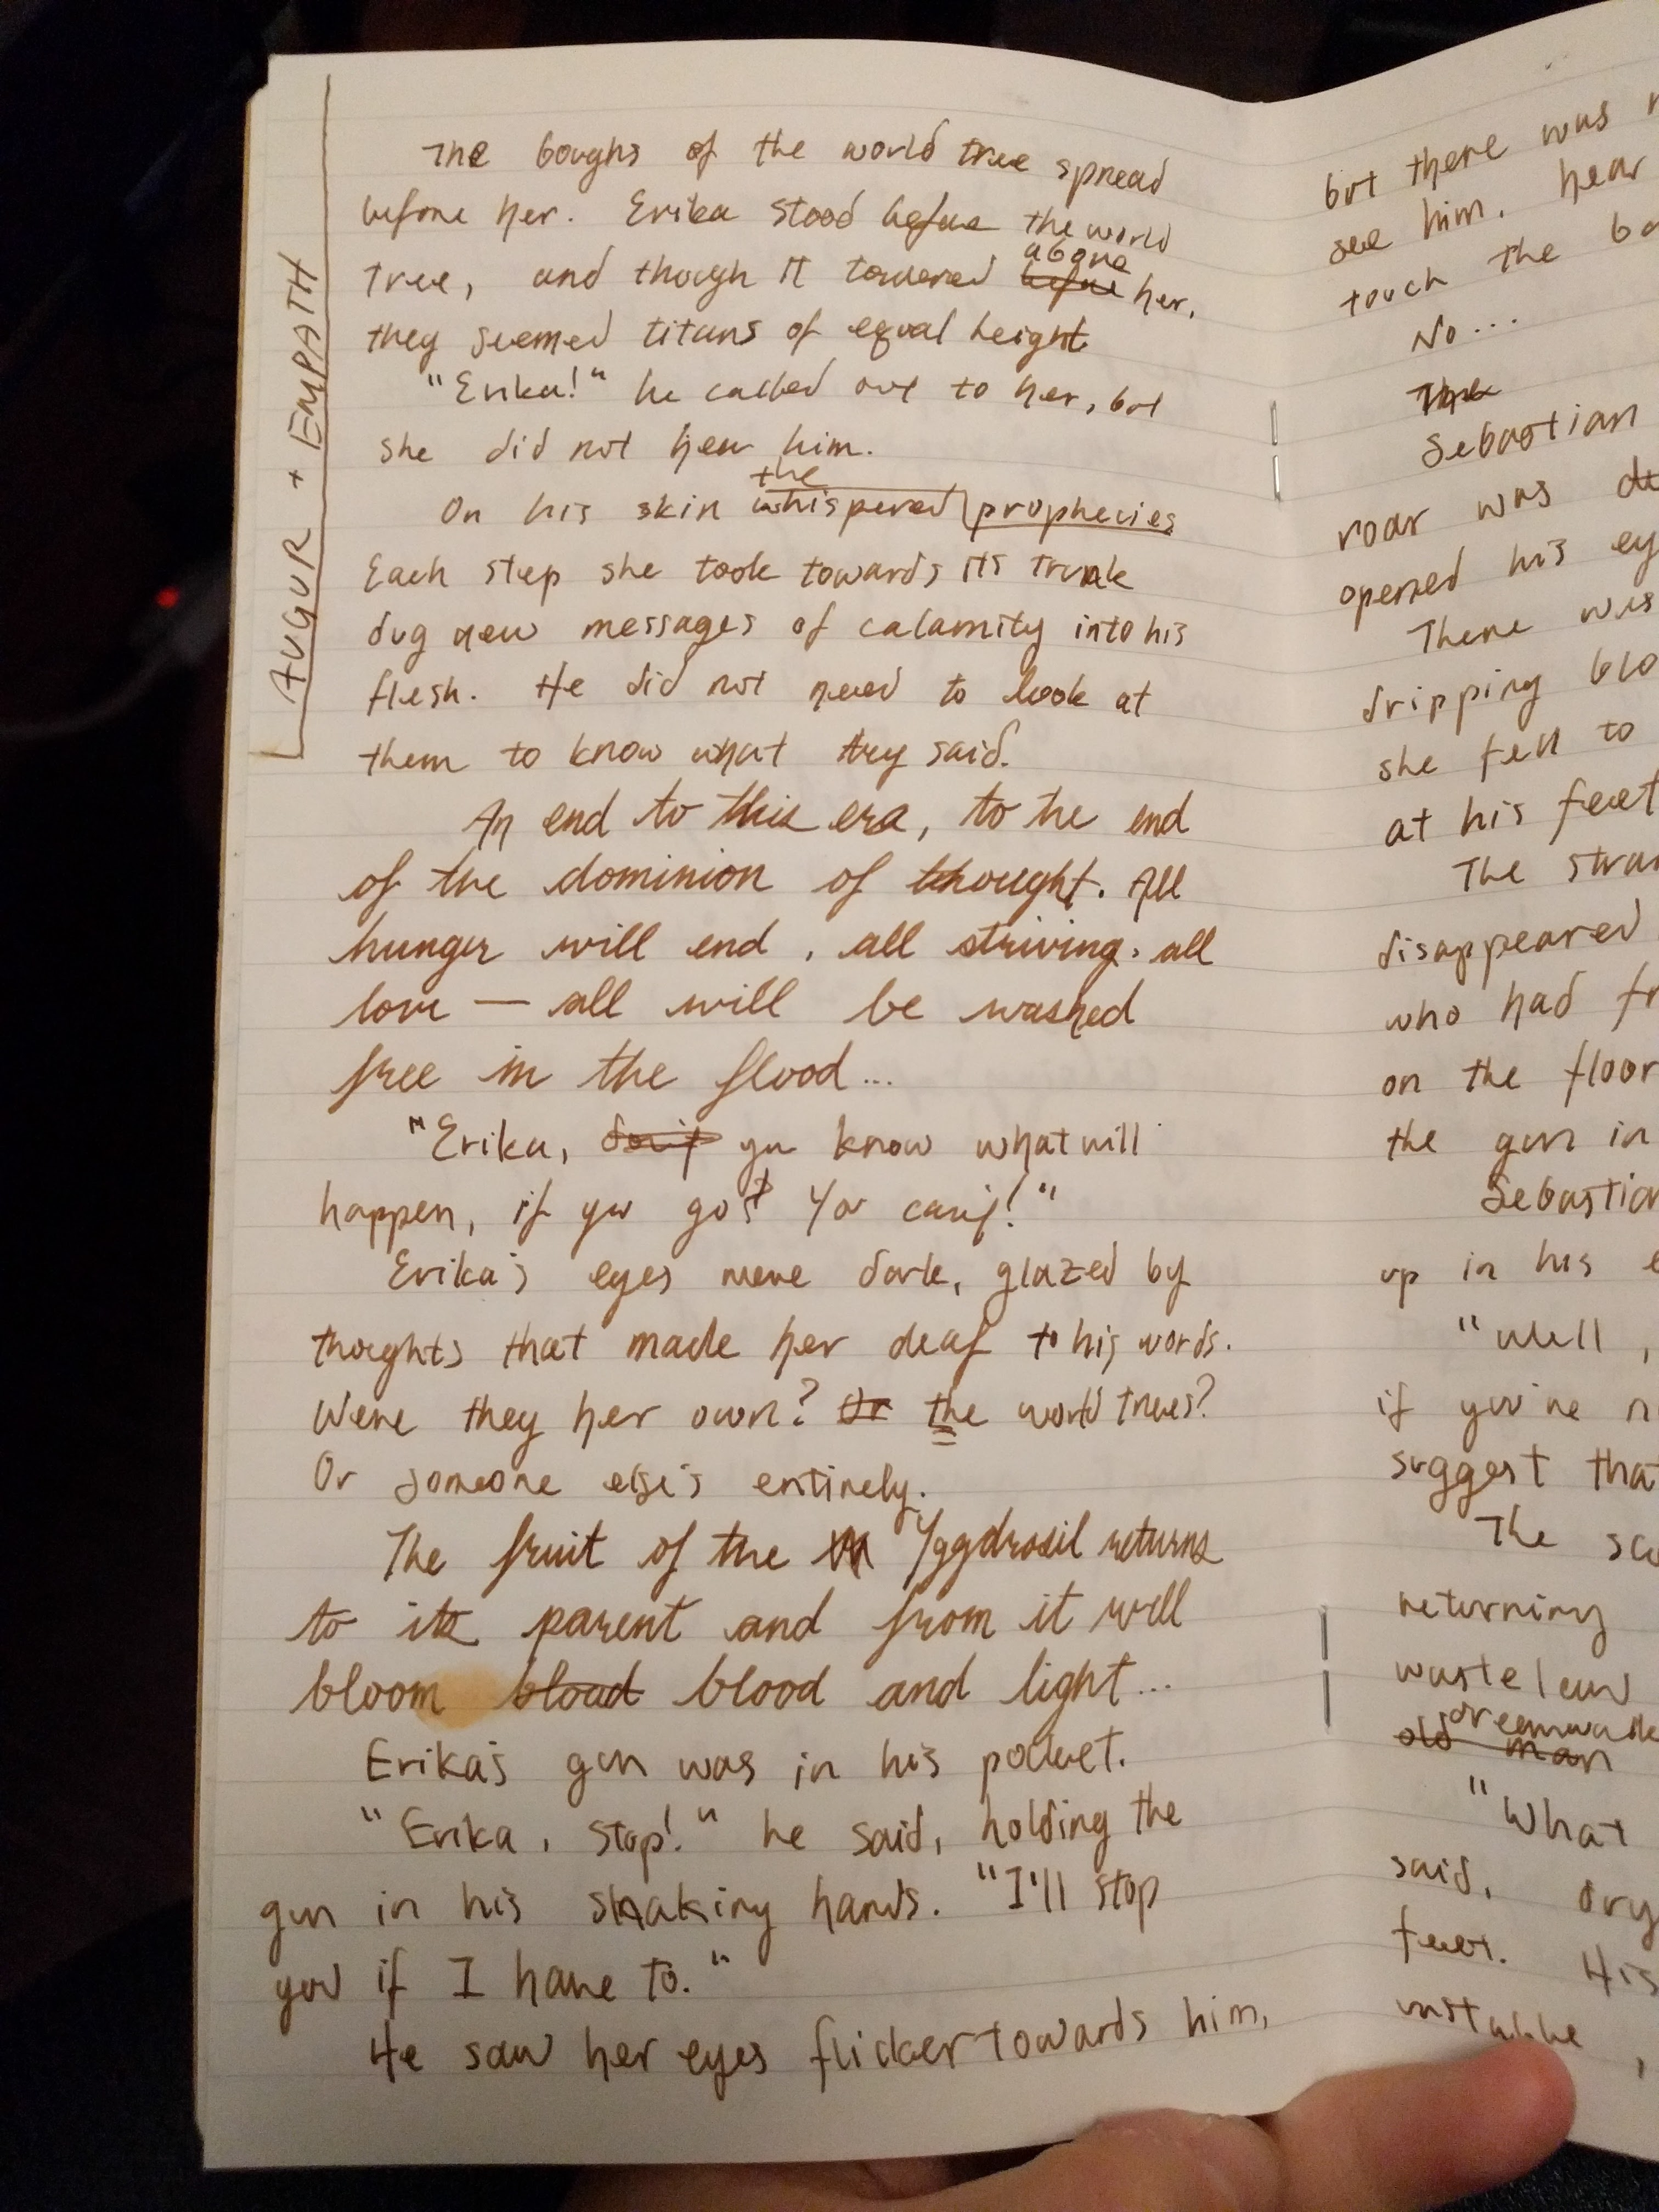 AUGUR + EMPATH
The boughs of the world tree spread
before her. Erika stood before the world
above
tree, and though it towered before her,
they seemed titans of equal height.
"Erika!" he called out to her, but
she did not hear him.
the
On his skin whispered prophecies
Each step she took towards its trunk
dug new messages of calamity into his
flesh. He did not need to look at
them to know what they said.
An end to this era, to the end
of the dominion of thought. All
hunger will end, all striving, all
love — all will be washed
free in the flood...
"Erika, you know what will
happen, if you go? You can't!"
Erika's eyes were dark, glazed by
thoughts that made her deaf to his words.
Were they her own? Or the world trees?
Or someone else's entirely.
The fruit of the Yggdrasil returns
to its parent and from it will
bloom bload blood and light...
Erika's gun was in his pocket.
"Erika, stop!" he said, holding the
gun in his shaking hands. "I'll stop
you if I have to."
He saw her eyes flicker towards him,
but there was
see him. hear
touch the
No...
The
Sebastian
roar was
opened his
There was
dripping
she fell to
at his feet
The
disappeared
who had
on the floor
the gun in
Sebastian
up in his
"Well,
if you're
suggest
The
returning
old man
"What
said.